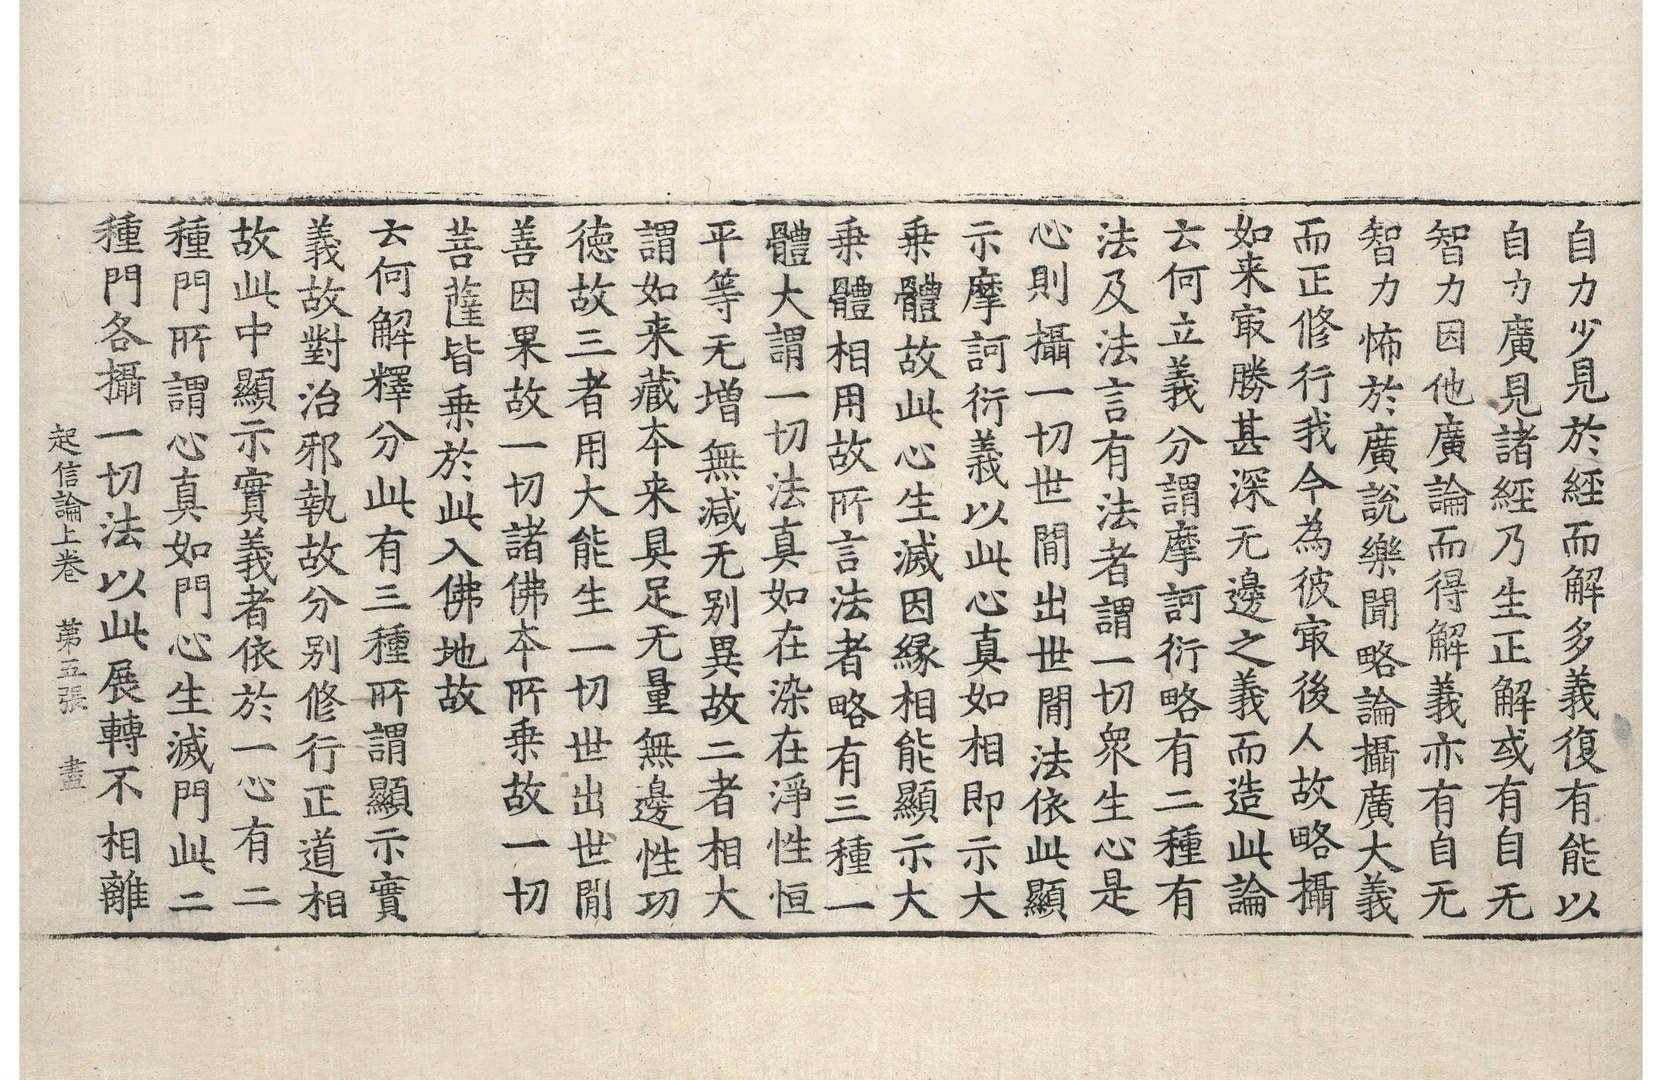 自力少見於經而解多義復有能以
自力廣見諸經乃生正解或有自无
智力因他廣論而得解義亦有自无
智力怖於廣說樂聞略論攝廣大義
而正修行我今為彼冣後人故略攝
如来冣勝甚深无邊之義而造此論
云何立義分謂摩訶衍略有二種有
法及法言有法者謂一切衆生心是
心則攝一切世閒出世閒法依此顯
示摩訶衍義以此心真如相即示大
乗體故此心生滅因縁相能顯示大
乗體相用故所言法者略有三種一
體大謂一切法真如在染在淨性恒
平等无增無减无别異故二者相大
謂如来藏本来具足无量無邊性功
徳故三者用大能生一切世出世閒
善因果故一切諸佛本所乗故一切
菩薩皆乗於此入佛地故
云何解釋分此有三種所謂顯示實
義故對治邪執故分别修行正道相
故此中顯示實義者依於一心有二
種門所謂心真如門心生滅門此二
種門各攝一切法以此展轉不相離
起信論上卷　第五張　畫